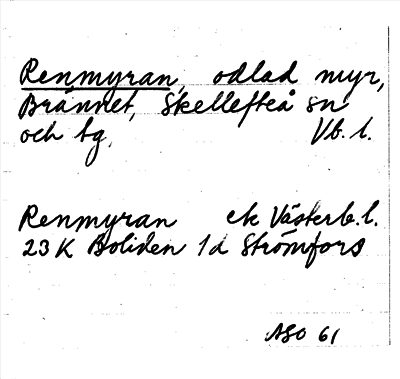 Renmyran, odlad myr,
Brännet, Skellefteå sn
och tg, Vb. l.
Renmyran ek Västerb. l.
23 K Boliden 1d Strömfors
ASO 61